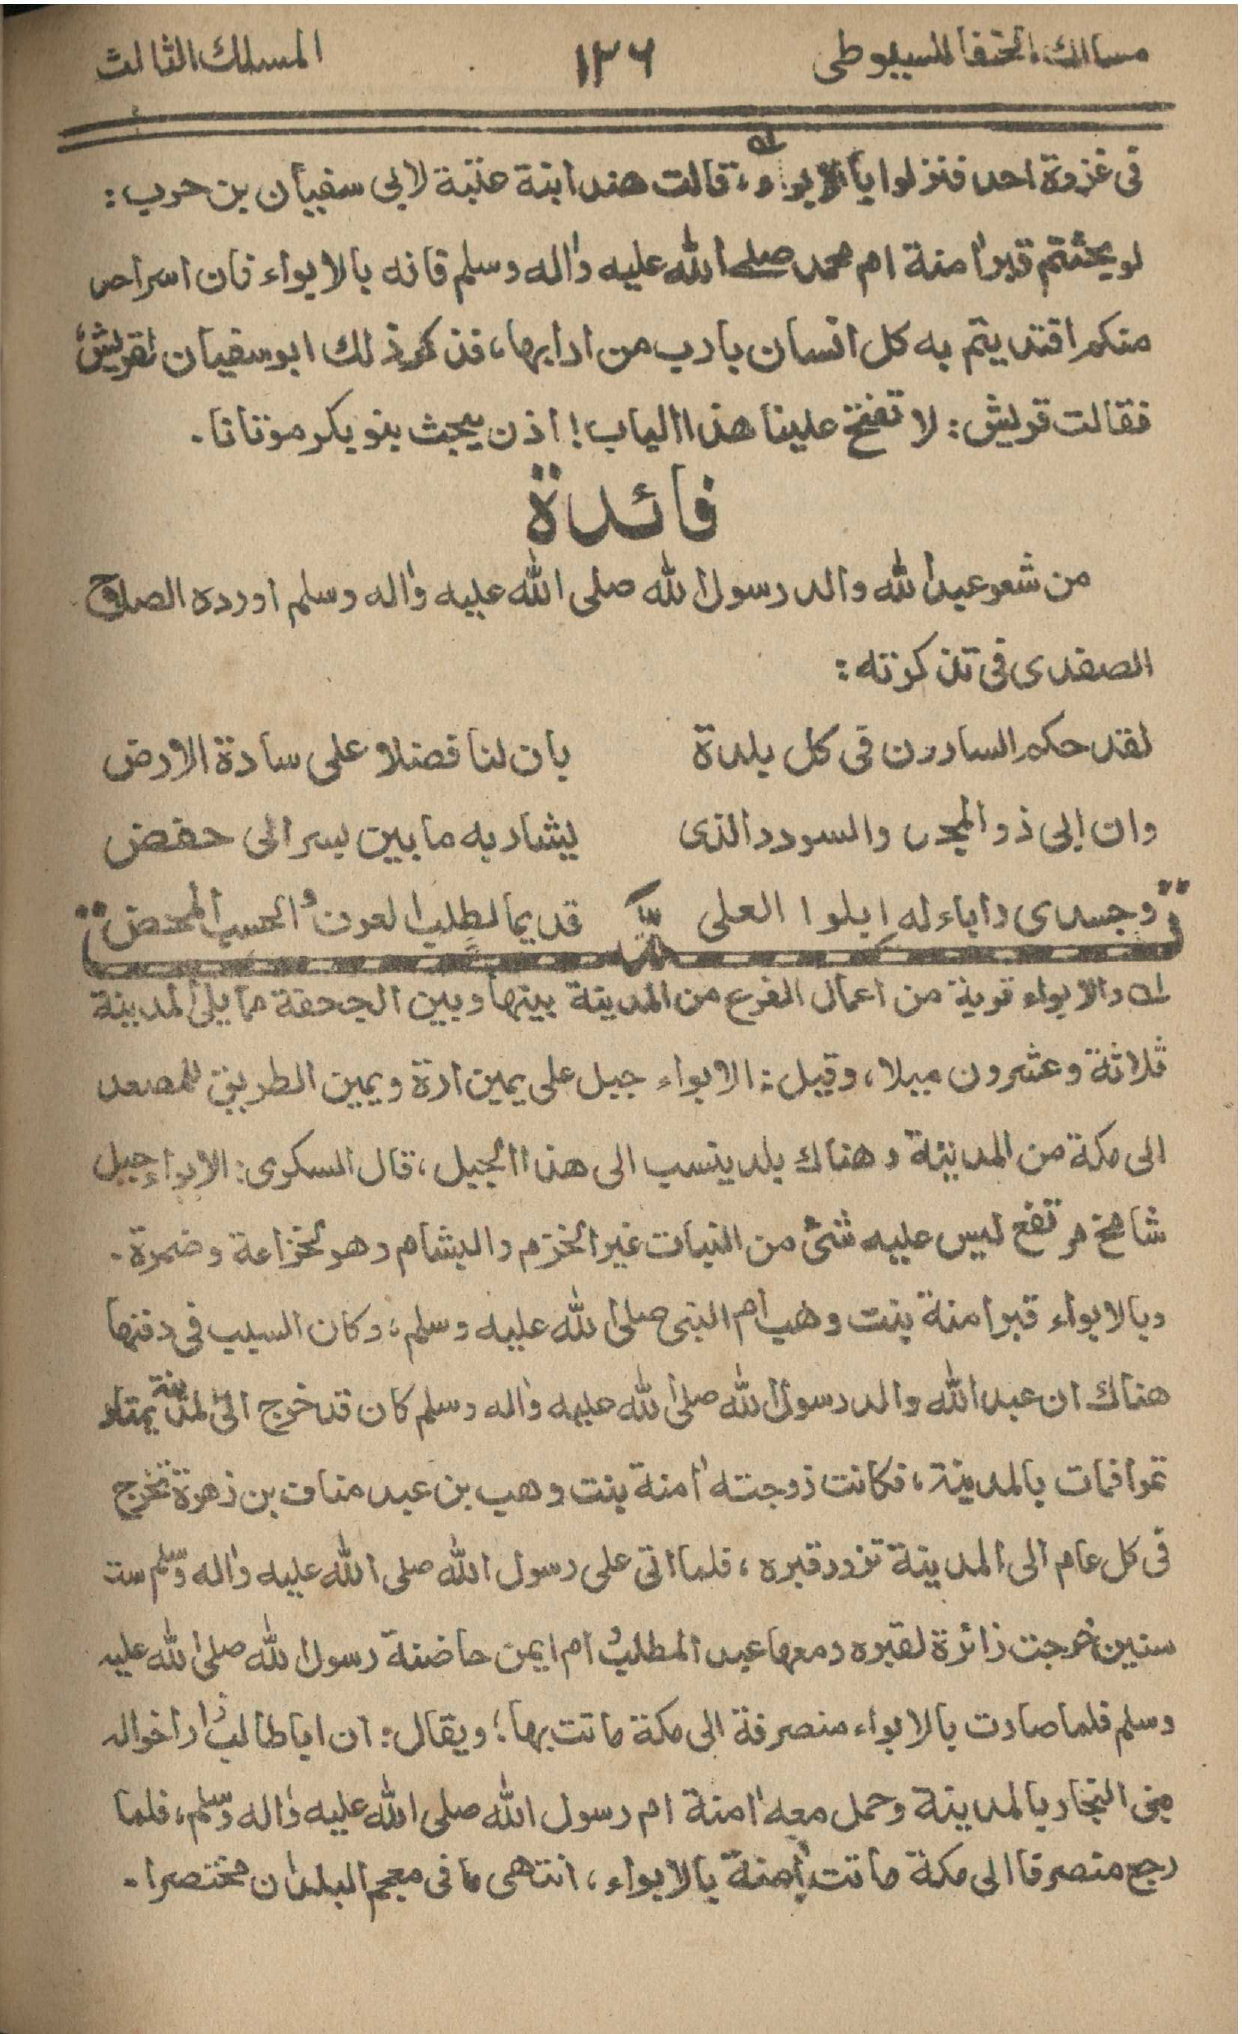 مسالك الحنفا للسيوطى ١٢٦ المسلك الثالث
فى غزوة احد فنزلوا بالابواء، قالت هند ابنة عتبة لابى سفيان بن حرب:
لو بحثتم قبر اٰمنة ام محمد صلى الله عليه واٰله وسلم فانه بالابواء فان اسراحد
منكم افتديتم به كل انسان بارب من ارابها، فذكر ذلك ابوسفيان لقريش،
فقالت قريش: لا تفتح علينا هذا الباب! اذن يبحث بنو بكر موتانا.
فائدة
من شعر عبد الله والد رسول الله صلى الله عليه واٰله وسلم اورده الصلاح
الصفدى فى تذكرته:
لقد حكم السارون فى كل بلدة بان لنا فضلا على سادة الارض
وان ابى ذو المجد والسودد الذى يشار به ما بين بسر الى خفض
وجدى واباء له ابلوا العلى قديما لطلب العرف والحسب المحض
له والابواء قرية من اعمال الفرع من المدينة بينها وبين الجحفة مما يلى المدينة
ثلاثة وعشرون ميلا، وقيل: الابواء جبل على يمين ارة ويمين الطريق للمصعد
الى مكة من المدينة وهناك بلد ينسب الى هذا الجبل، قال السكرى: الابواء جبل
شامخ مرتفع ليس عليه شئ من النبات غير الخزم والبشام وهو لخزاعة وضمرة.
وبالابواء قبر امنة بنت وهب ام النبى صلى الله عليه وسلم، وكان السبب فى دفنها
هناك ان عبد الله والد رسول الله صلى الله عليه واٰله وسلم كان قد خرج الى المدينة يمتار
تمرا فمات بالمدينة، فكانت زوجته اٰمنة بنت وهب بن عبد مناف بن زهرة تخرج
فى كل عام الى المدينة تزور قبره، فلما اتى على رسول الله صلى الله عليه واٰله وسلم ست
سنين خرجت زائرة لقبره ومعها عبد المطلب و ام ايمن حاضنة رسول الله صلى الله عليه
وسلم فلما صارت بالابواء منصرفة الى مكة ماتت بها؛ ويقال: ان ابا طالب زار اخواله
بنى النجار بالمدينة وحمل معه اٰمنة ام رسول الله صلى الله عليه واٰله وسلم، فلما
رجع منصرفا الى مكة ماتت اٰمنة بالابواء، انتهى ما فى معجم البلدان مختصرا.